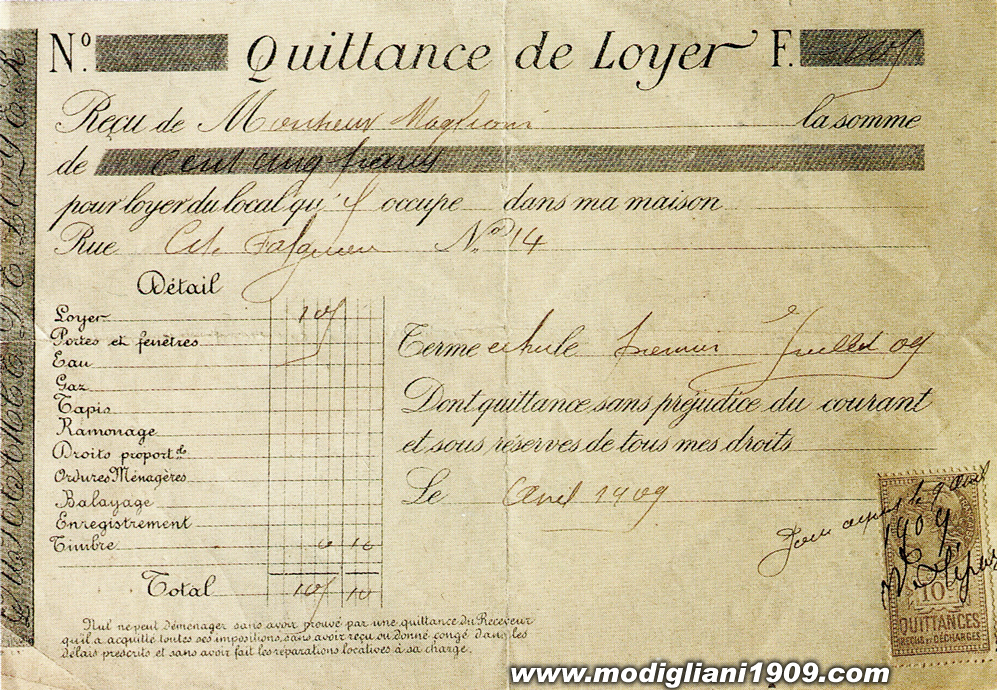 Nº. Quittance de Loyer F. 105
Reçu de Monsieur la somme
de Cent cinq francs
pour loyer du local qu'il occupe dans ma maison
Rue Cité Falguière Nº 14
Détail
Loyer 105
Portes et fenêtres
Eau
Gaz
Tapis
Ramonage
Droits proport.ls
Ordures Ménagères
Balayage
Enregistrement
Timbre 0 10
Total 105 10
Terme échu le premier Juillet 09
Dont quittance sans préjudice du courant
et sous réserves de tous mes droits
Le Avril 1909
le 9 Avril
1909
10c
QUITTANCES
REÇUS ET DÉCHARGES
Nul ne peut Déménager sans avoir prouvé par une quittance du Receveur
qu'il a acquitté toutes ses impositions, sans avoir reçu ou donné congé dans les
délais prescrits et sans avoir fait les réparations locatives à sa charge.
www.modigliani1909.com